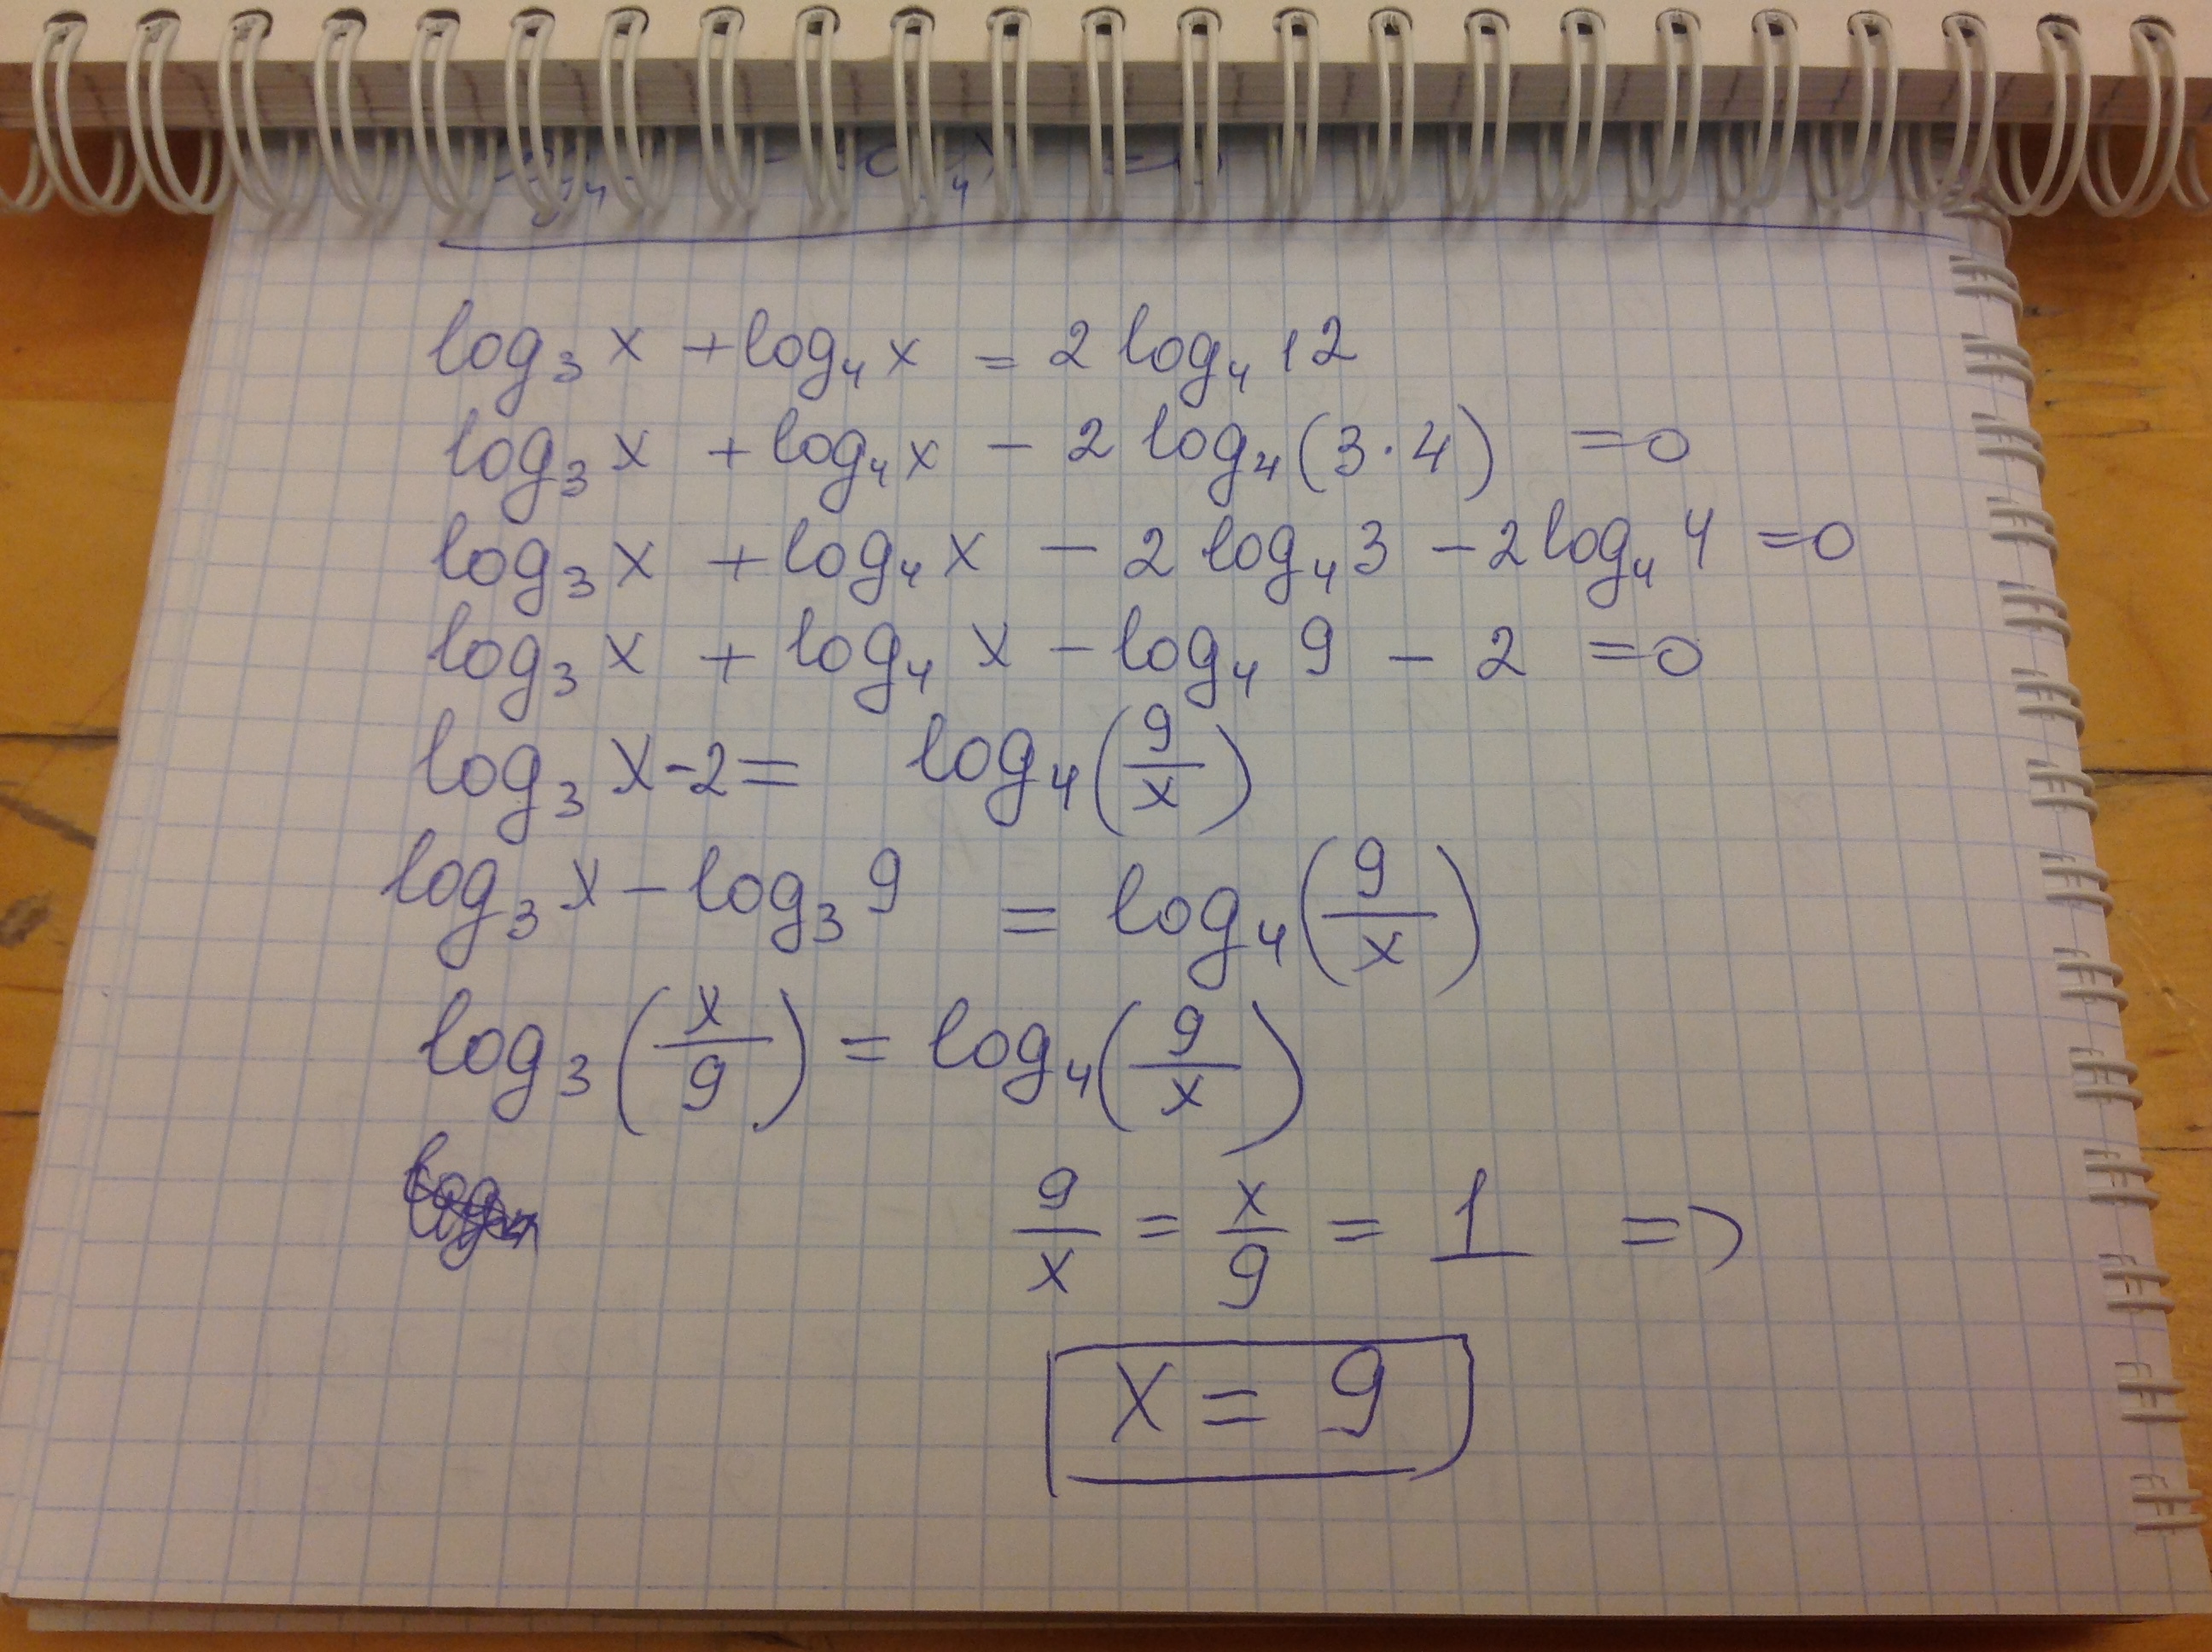 = 0
log₃ x + log₄ x = 2 log₄ 12
log₃ x + log₄ x − 2 log₄ (3·4) = 0
log₃ x + log₄ x − 2 log₄ 3 − 2 log₄ 4 = 0
log₃ x + log₄ x − log₄ 9 − 2 = 0
log₃ x - 2 = log₄ (9/x)
log₃ x − log₃ 9 = log₄ (9/x)
log₃ (x/9) = log₄ (9/x)
9/x = x/9 = 1 =>
x = 9